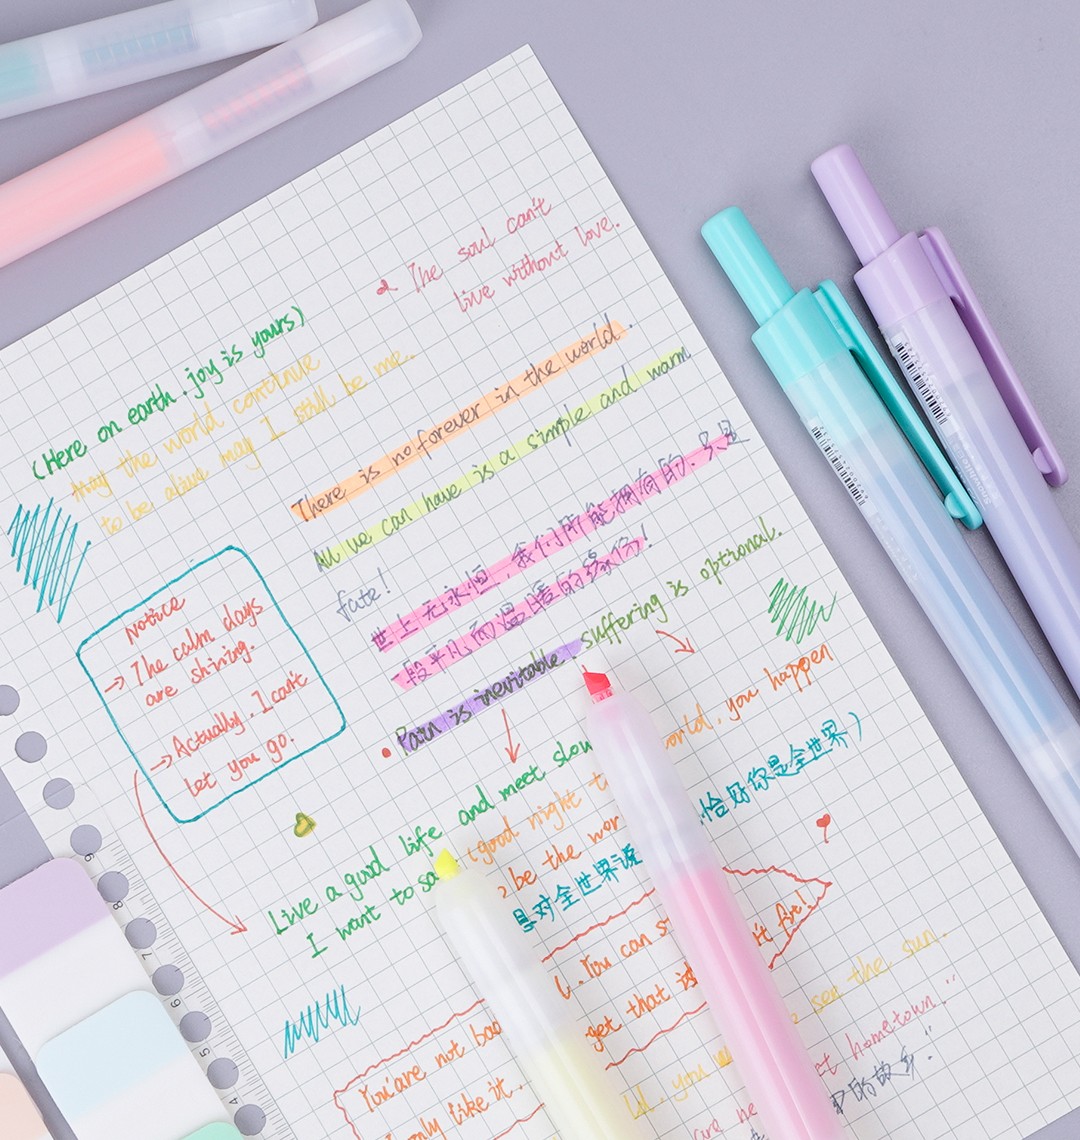 The soul can't
live without love.
(Here on earth. joy is yours)
may the world continue
to be alive may I still be me.
There is no forever in the world.
All we can have is a simple and warm
fate!
世上无永恒,我们所能拥有的.只是
一段平凡而温暖的缘份!
Pain is inevitable. suffering is optional.
Notice
→ The calm days
are shining.
→ Actually. I can't
let you go.
Live a good life and meet slow
I want to sa
(good night t world. you happen
be the wor 恰好你是全世界)
对全世界说
You can s
get that is
't fit!
You'are not bad
only like it.
see the sun.
you
are ne et hometown."
的故乡."
9
8
7
6
5
4